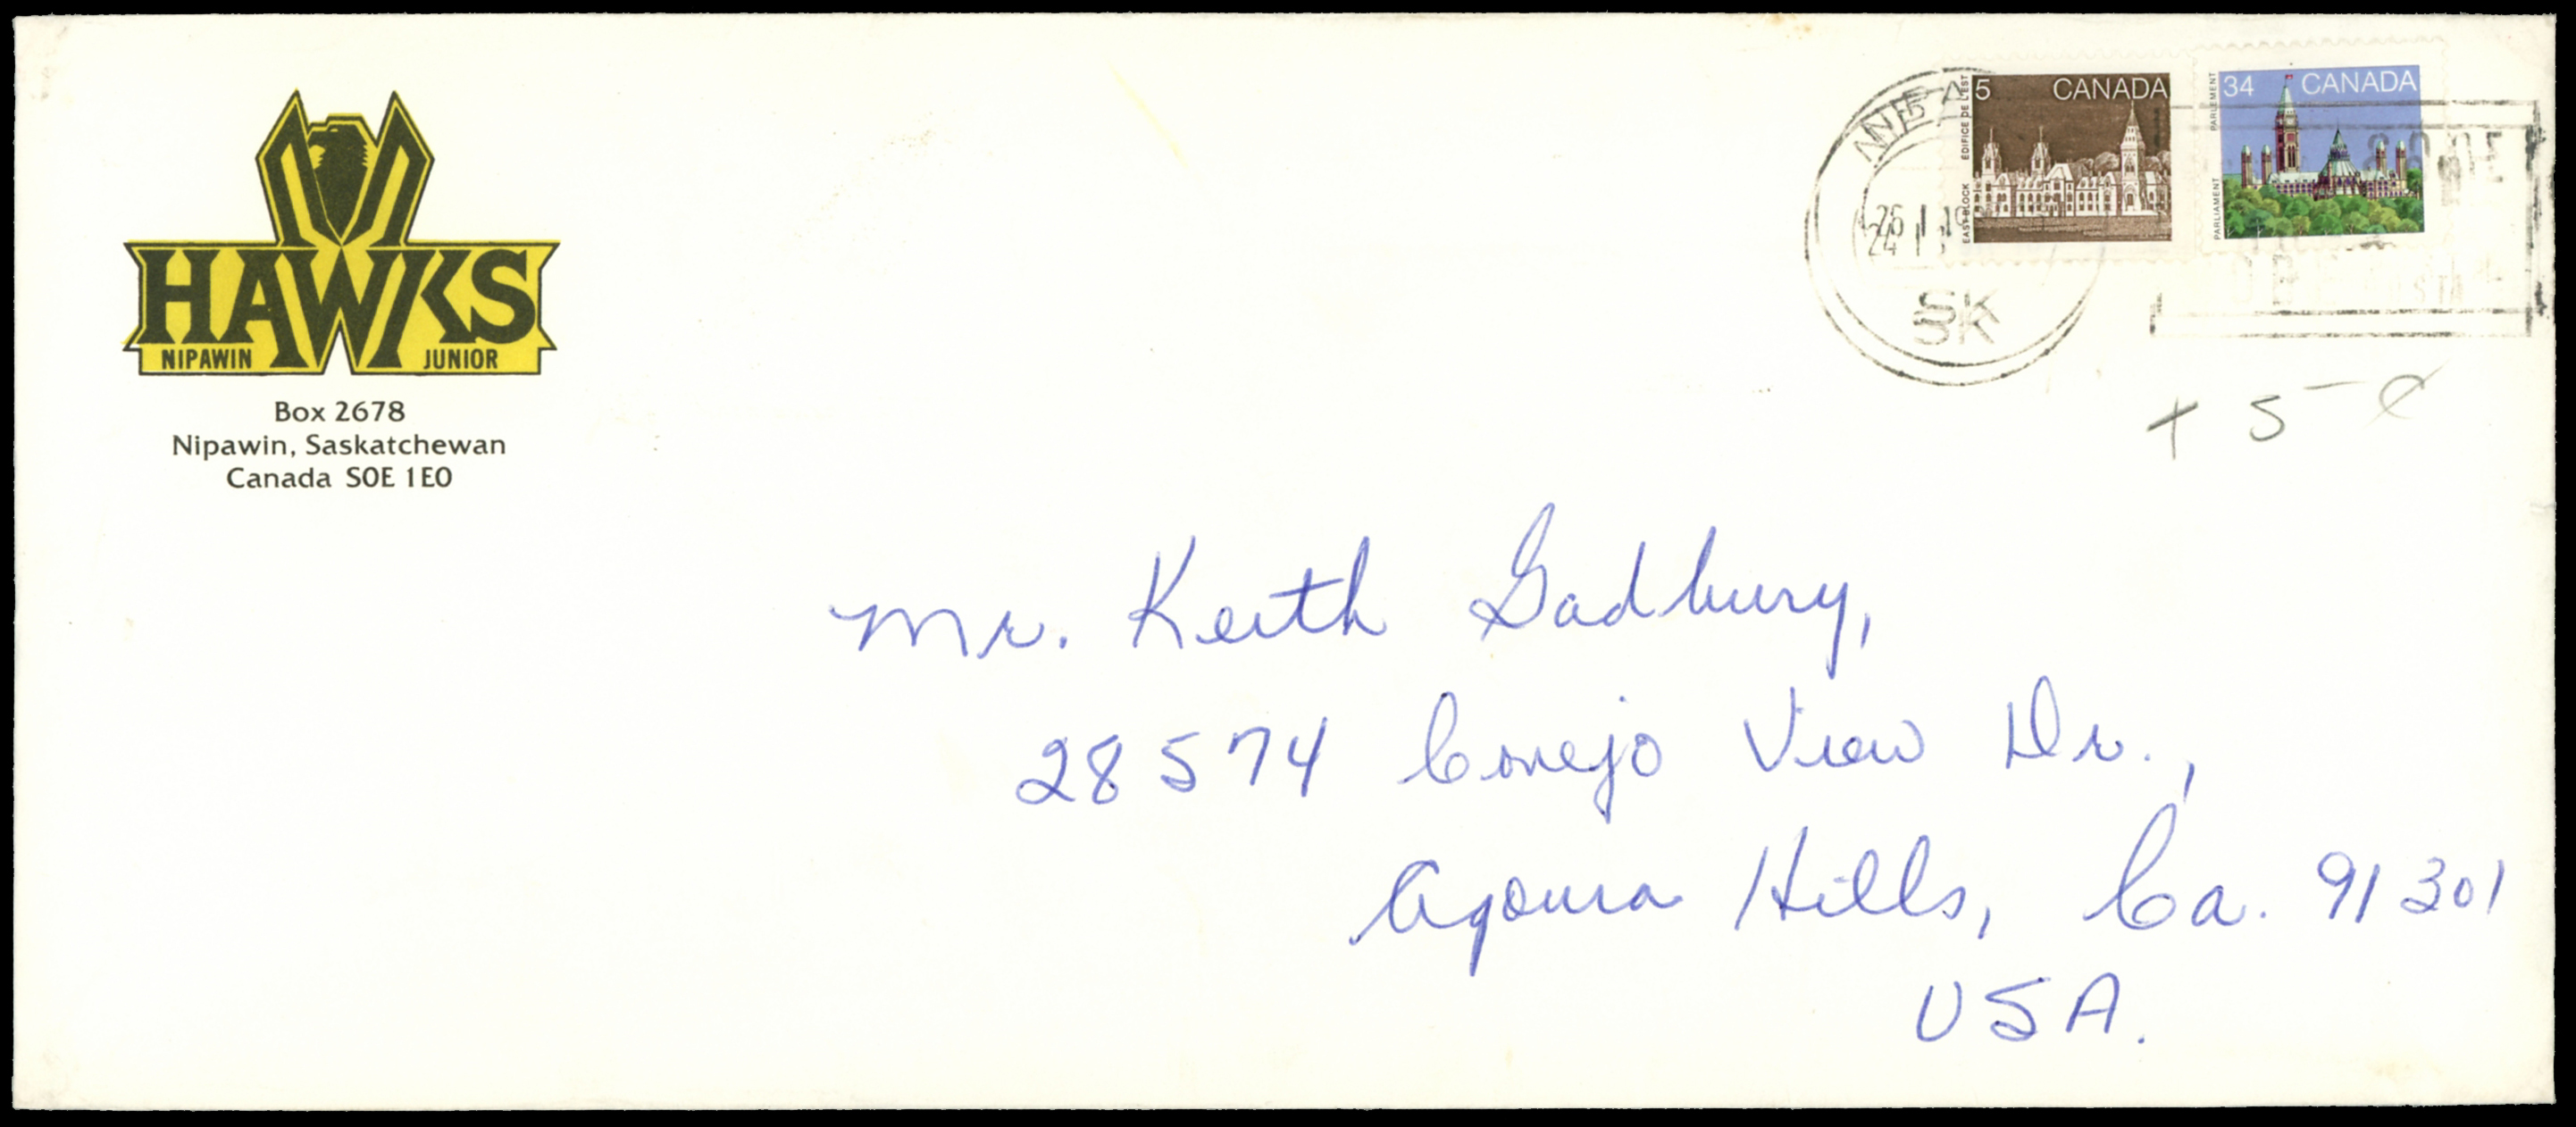 HAWKS
NIPAWIN JUNIOR
Box 2678
Nipawin, Saskatchewan
Canada S0E 1E0
EAST BLOCK EDIFICE DE L'EST
5 CANADA
PARLIAMENT PARLEMENT
34 CANADA
SK
SK
+ 5 ¢
Mr. Keith Gadbury,
28574 Conejo View Dr.,
Agoura Hills, Ca. 91301
USA.